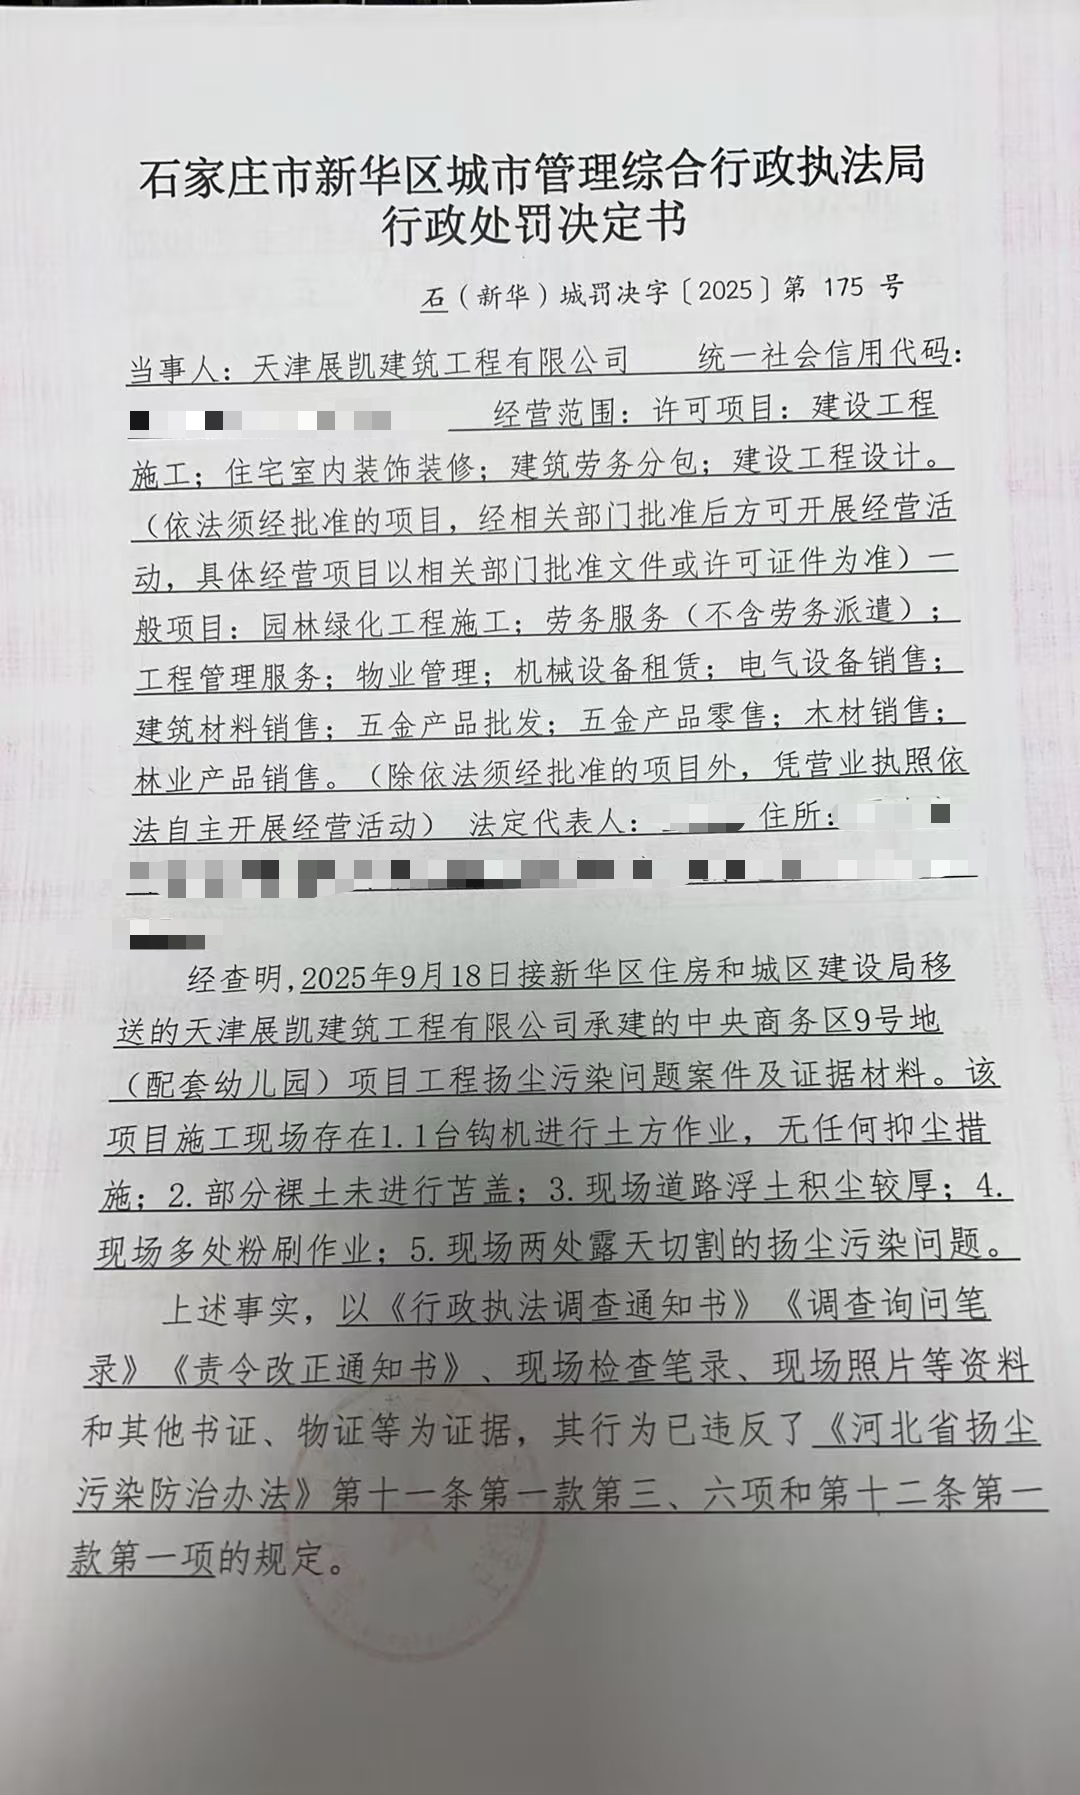 石家庄市新华区城市管理综合行政执法局
行政处罚决定书
石（新华）城罚决字〔2025〕第 175 号
当事人：天津展凯建筑工程有限公司 统一社会信用代码：
经营范围：许可项目：建设工程
施工；住宅室内装饰装修；建筑劳务分包；建设工程设计。
（依法须经批准的项目，经相关部门批准后方可开展经营活
动，具体经营项目以相关部门批准文件或许可证件为准）一
般项目：园林绿化工程施工；劳务服务（不含劳务派遣）；
工程管理服务；物业管理；机械设备租赁；电气设备销售；
建筑材料销售；五金产品批发；五金产品零售；木材销售；
林业产品销售。（除依法须经批准的项目外，凭营业执照依
法自主开展经营活动） 法定代表人： 住所：
经查明,2025年9月18日接新华区住房和城区建设局移
送的天津展凯建筑工程有限公司承建的中央商务区9号地
（配套幼儿园）项目工程扬尘污染问题案件及证据材料。该
项目施工现场存在1.1台钩机进行土方作业，无任何抑尘措
施；2.部分裸土未进行苫盖；3.现场道路浮土积尘较厚；4.
现场多处粉刷作业；5.现场两处露天切割的扬尘污染问题。
上述事实，以《行政执法调查通知书》《调查询问笔
录》《责令改正通知书》、现场检查笔录、现场照片等资料
和其他书证、物证等为证据，其行为已违反了《河北省扬尘
污染防治办法》第十一条第一款第三、六项和第十二条第一
款第一项的规定。